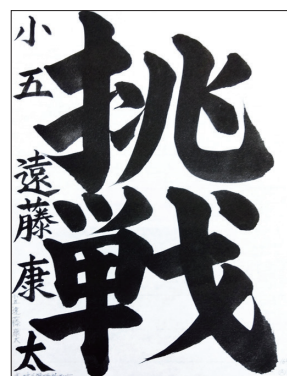 挑戦
小五 遠藤康太